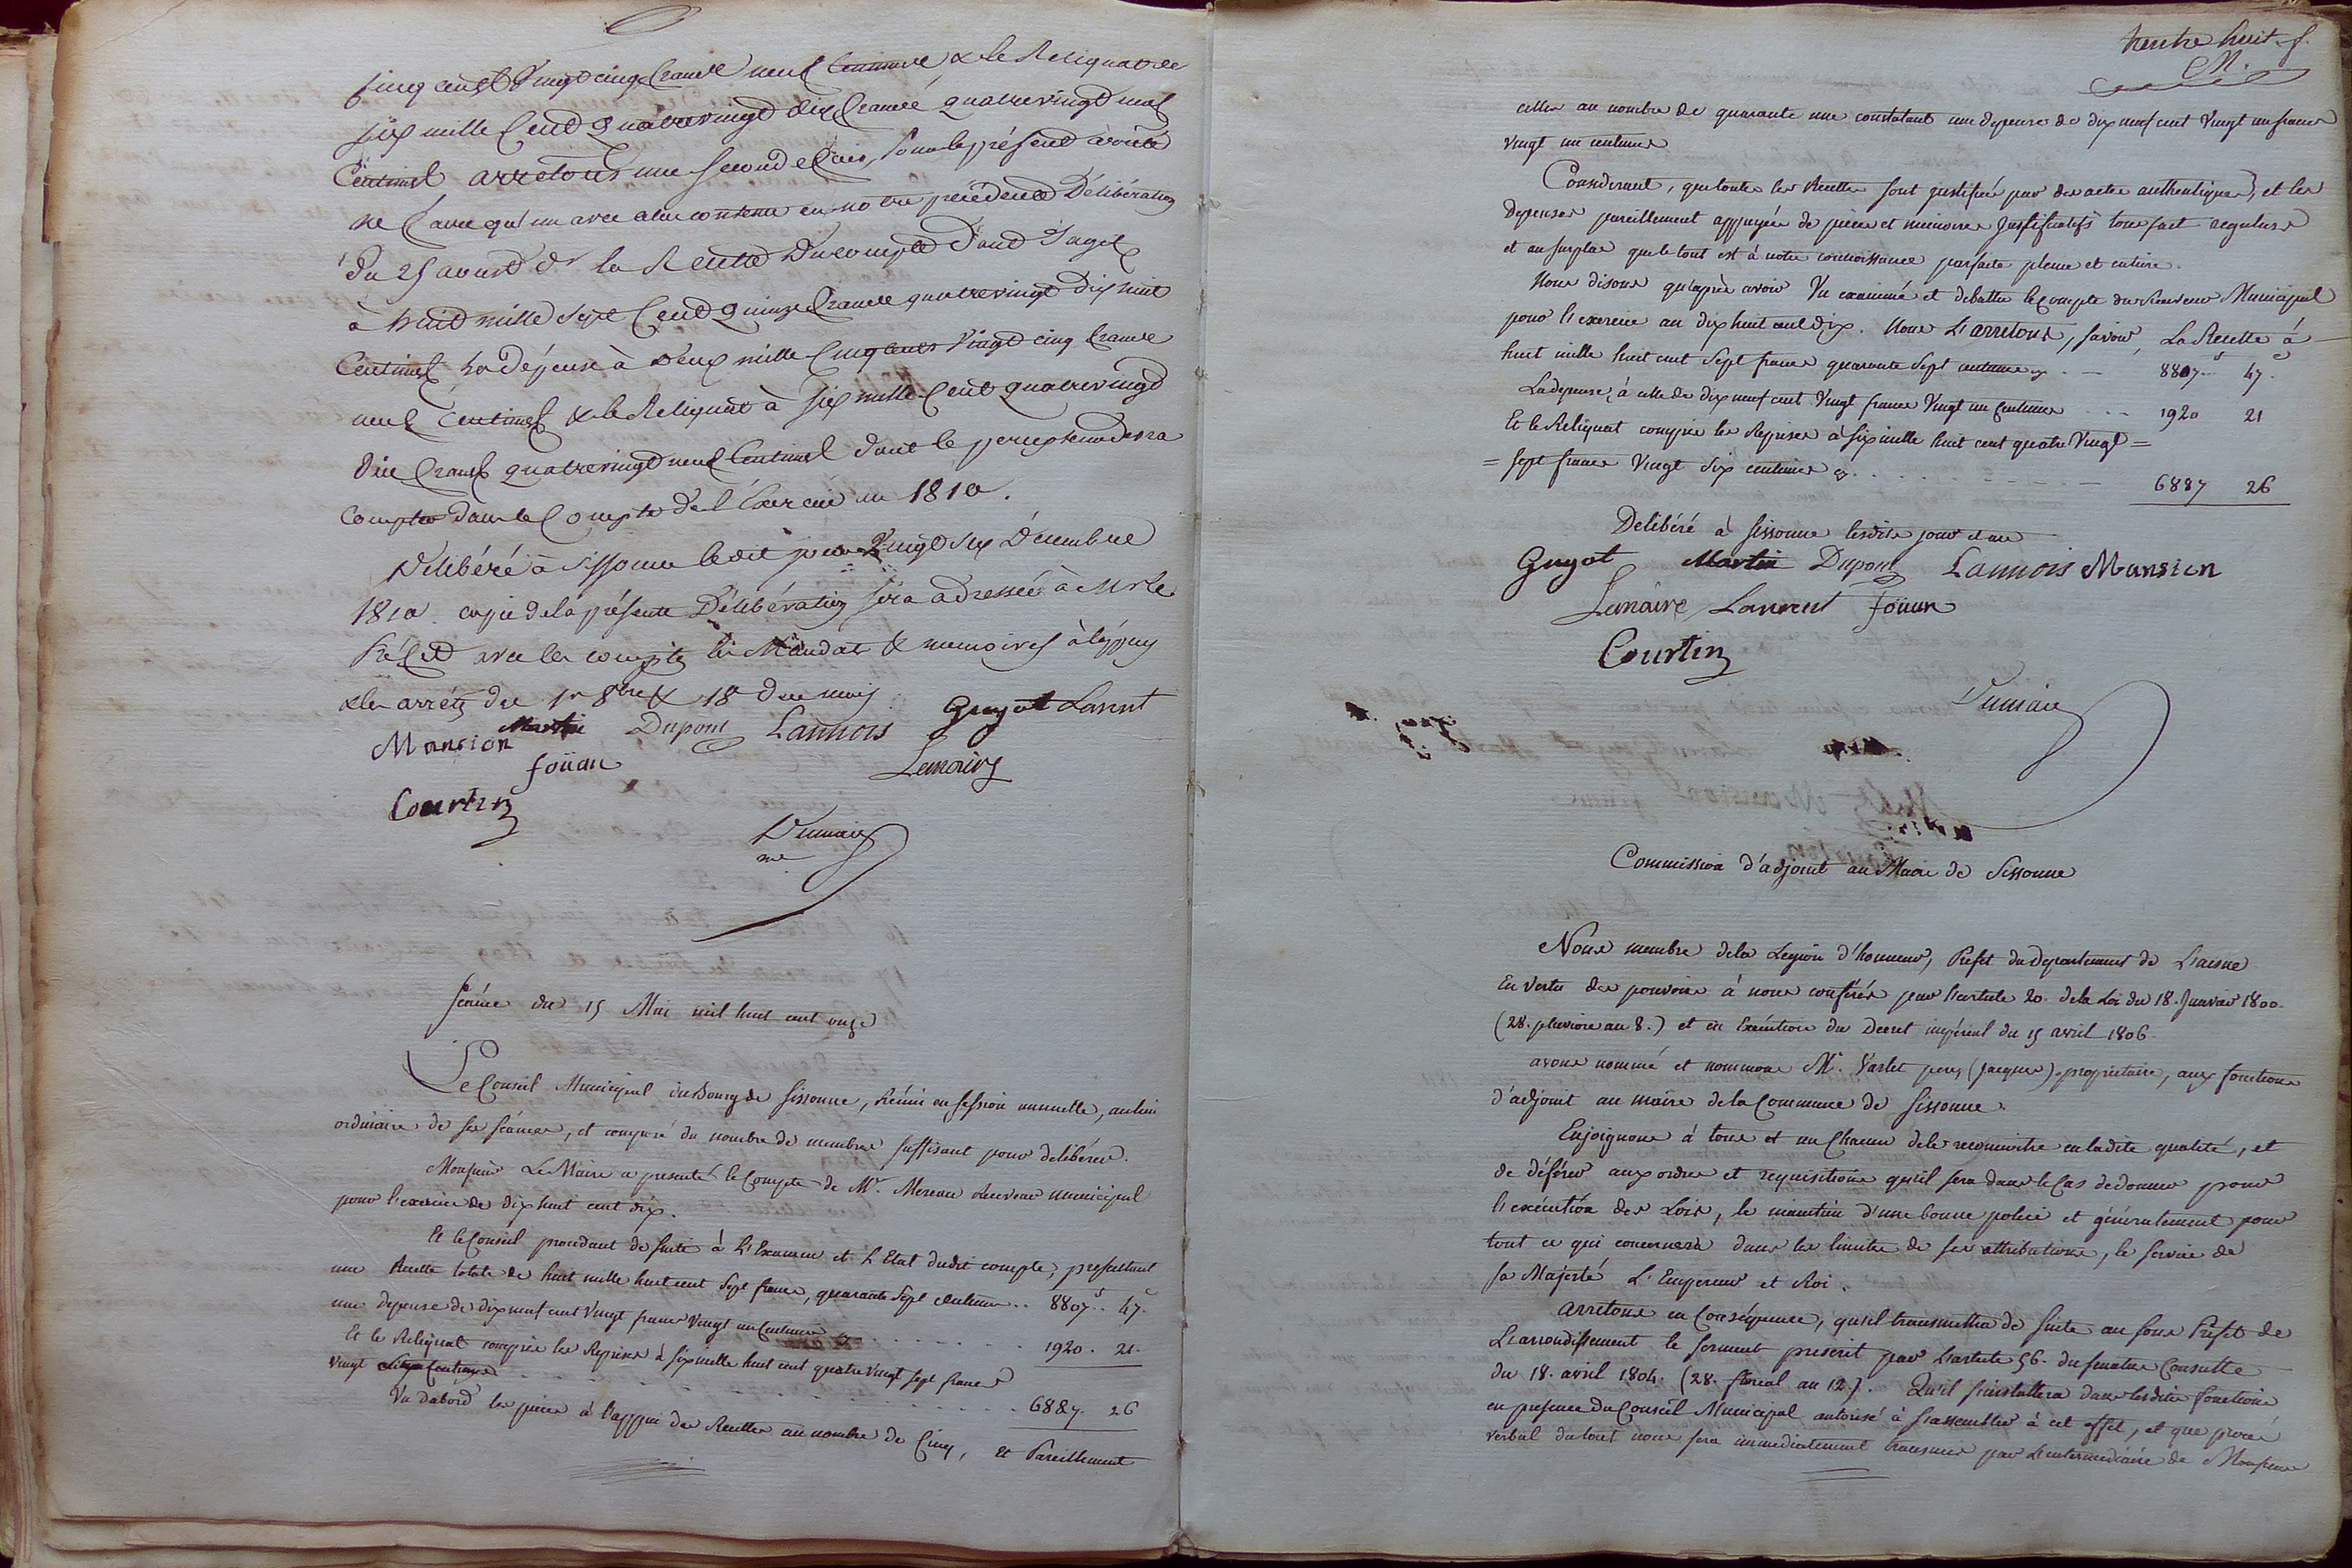 cinq cent vingt cinq francs neuf centimes & le Reliquat de
six mille cent quatrevingt dix francs quatrevingt neuf
Centimes arretons une seconde fois, sous le présent
ne faire qu'un avec celui contenu en notre précédente Délibération
du 25 la Recette du compte dont s'agit
à huit mille sept cent quinze francs quatrevingt dix huit
Centimes la dépense à deux mille cinq cents vingt cinq francs
neuf centimes & le Reliquat à six mille cent quatrevingt
dix francs quatrevingt neuf centimes dont le percepteur devra
compter dans le Compte de l'Exercice 1810.
Délibéré à Sissonne ledit jour vingt six Décembre
1810. copie de la présente Délibération sera adressée à Mr le
Préfet avec les comptes les Mandats & memoires à l'appuy
& les arrêtés du 1er 8bre & 18 du mois
Guyot Laurent
Mansion Martin Dupont Lannois
foüan Lemaire
Courtin
Séance du 15 Mai mil huit cent onze
Le Conseil Municipal du Bourg de Sissonne, Réuni en session annuelle, au lieu
ordinaire de ses séances, et composé du nombre de membres suffisant pour delibérer.
Monsieur Le Maire a presenté le Compte de Mr. Mereau Receveur municipal
pour l'exercice de dix huit cent dix.
Et le Conseil procedant de suite à l'Examen et l'Etat dudit compte, presentant
une Recette totale de huit mille huit cent sept francs, quarante sept centimes .. 8807 .. 47.
une depense de dix neuf cent vingt francs vingt un Centimes 1920 . 21.
Et le Reliquat compris les Reprises à six mille huit cent quatre vingt sept francs
vingt six Centimes 6887. 26
Vu d'abord les pieces à l'appui des Recettes au nombre de Cinq, et Pareillement
trente huit f.
celles au nombre de quarante une constatant une depense de dix neuf cent vingt un francs
vingt un centimes
Considerant, que toutes les Recettes sont justifiées par des actes authentiques, et les
depenses pareillement appuyées de pieces et memoires justificatifs tous fait reguliers
et au surplus que le tout est à notre connoissance parfaite pleine et entiere.
Nous disons qu'après avoir Vu examiné et debattu le compte du Receveur Municipal
pour l'exercice an dix huit cent dix. Nous L'arretons, savoir, La Recette à
huit mille huit cent sept francs quarante sept centimes 8807 47.
La depense, à celle de dix neuf cent vingt francs vingt un Centimes 1920 21
Et le Reliquat compris les Reprises à six mille huit cent quatre vingt =
= sept francs vingt six centimes 6887 26
Delibéré à Sissonne lesdits jour et an
Guyot Martin Dupont Lannois Mansion
Lemaire Laurent foüan
Courtin
Commission d'adjoint au Maire de Sissonne
Nous membre de la Legion d'honneur, Prefet du Departement de L'aisne
En vertu des pouvoirs à nous conférés par l'article 20. de la Loi du 18. Janvier 1800.
(28. pluviose an 8.) et en Exécution du Decret impérial du 15 avril 1806.
avons nommé et nommons Mr. Varlet pere, (Jacques) proprietaire, aux fonctions
d'adjoint au maire de la Commune de Sissonne.
Enjoignons à tous et un Chacun de le reconnoitre en ladite qualité, et
de déférer aux ordres et requisitions qu'il sera dans le Cas de donner pour
l'exécution des Lois, le maintien d'une bonne police et généralement pour
tout ce qui concernera dans les limites de ses attributions, le service de
sa Majesté L'Empereur et Roi.
Arretons en Conséquence, qu'il transmettra de suite au sous Prefet de
L'arrondissement le serment prescrit par L'article 56. du senatus Consulte
du 18. avril 1804. (28. floreal an 12.). Qu'il s'installera dans lesdites fonctions
en presence du Conseil Municipal autorisé à s'assembler à cet effet, et que procès
verbal du tout nous sera immediatement transmis par L'intermediaire de Monsieur